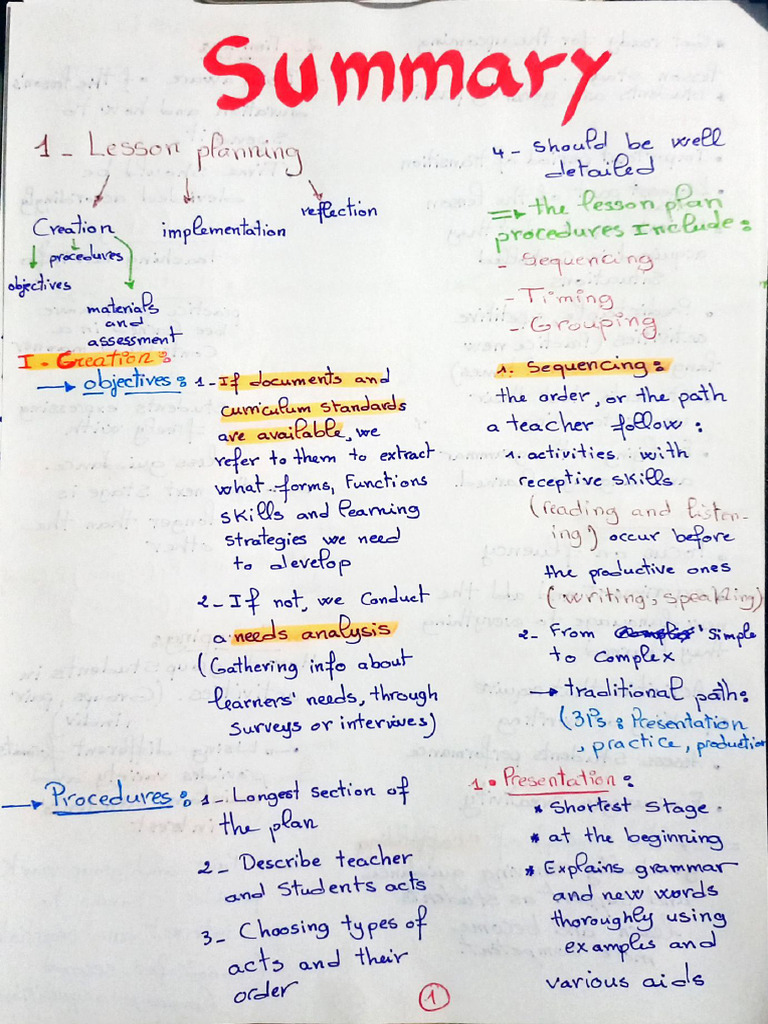 Summary
1 - Lesson planning
Creation
implementation
reflection
procedures
objectives
materials
and
assessment
I - Creation :
→ objectives : 1 - If documents and
curiculum standards
are available, we
refer to them to extract
what forms, Functions
skills and learning
strategies we need
to develop
2 - If not, we Conduct
a needs analysis
(Gathering info about
learners' needs, through
surveys or interviwes)
→ Procedures : 1 - Longest section of
the plan
2 - Describe teacher
and Students acts
3 - Choosing types of
acts and their
order
4 - should be well
detailed
=> the lesson plan
procedures Include :
- Sequencing
- Timing
- Grouping
1. Sequencing :
the order, or the path
a teacher follow :
1. activities with
receptive skills
(reading and listen-
ing) occur before
the productive ones
(writing, speaking)
2 - From simple
to Complex
→ traditional path :
(3Ps : Presentation
, practice, production
1. Presentation :
* Shortest Stage
* at the beginning
* Explains grammar
and new words
thoroughly using
examples and
various aids
1